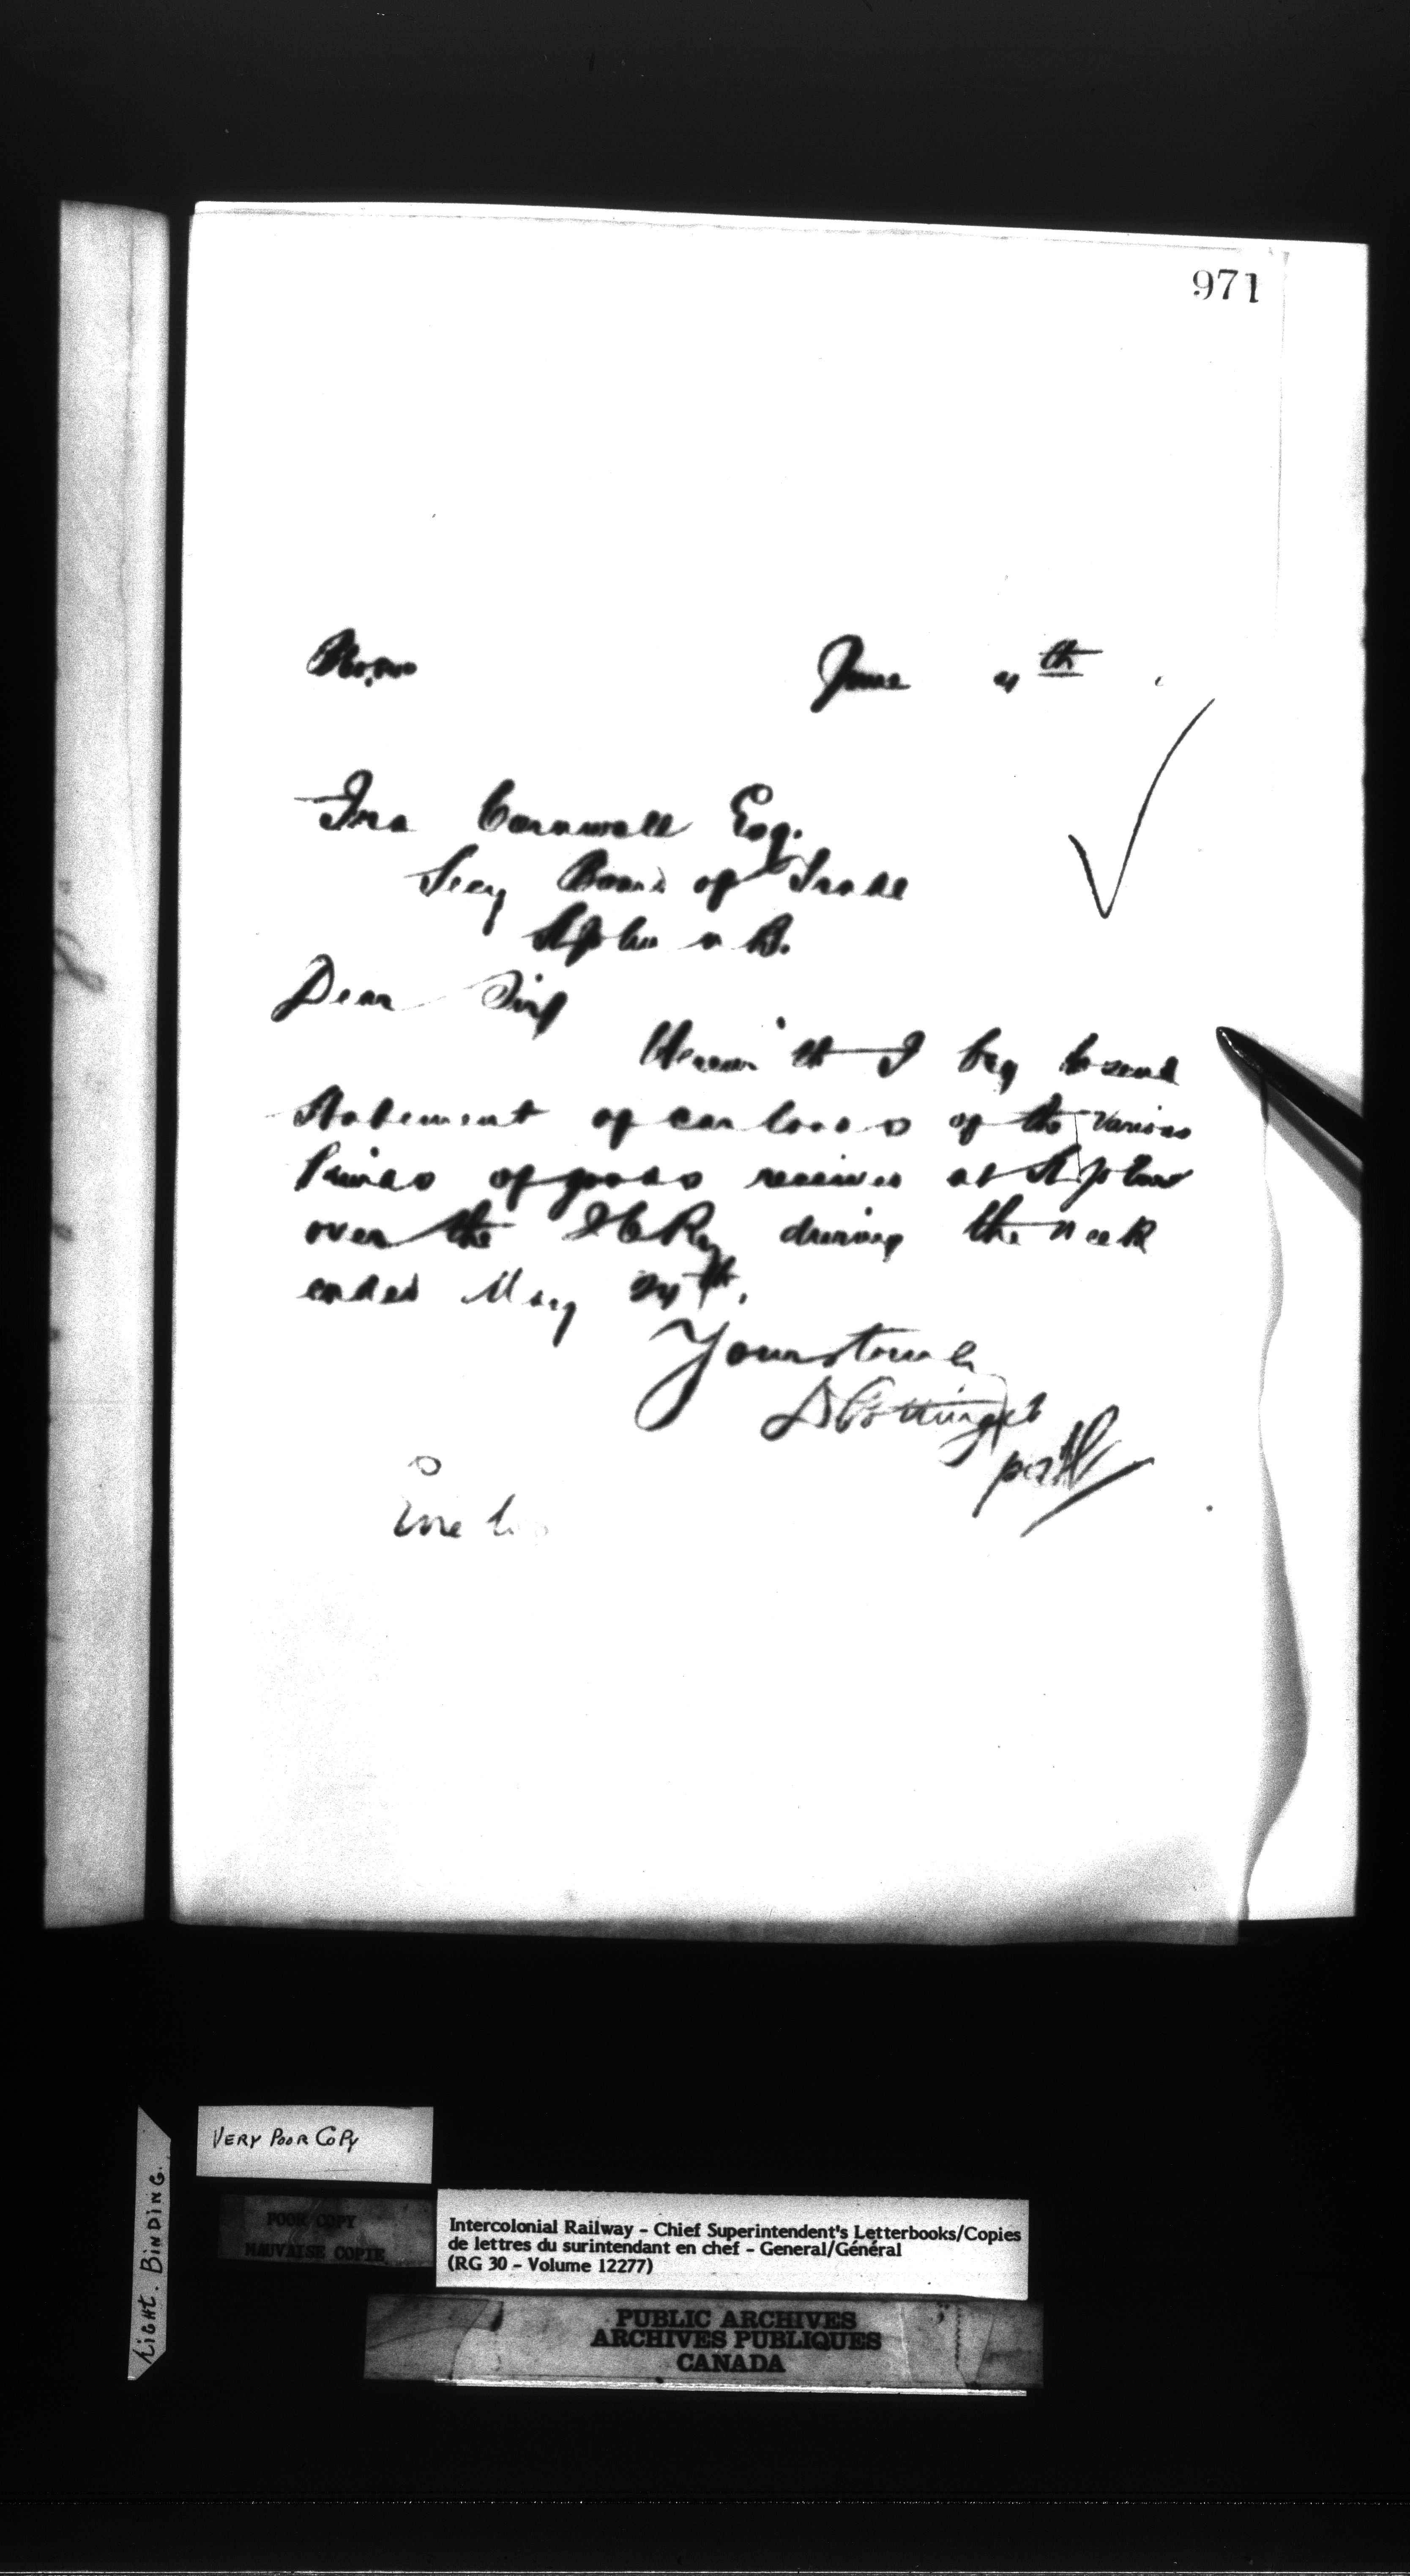 971
June 4th
Ira Cornwall Esq.
Secy Board of Trade
St John N B.
Dear Sir
Herewith I beg to send
statement of car loads of the various
kinds of goods received at St John
over the I C Ry during the week
ended May 24th.
Yours truly
D Pottinger
per
VERY POOR COPY
POOR COPY
MAUVAISE COPIE
TIGHT. BINDING.
Intercolonial Railway – Chief Superintendent's Letterbooks/Copies
de lettres du surintendant en chef – General/Général
(RG 30 – Volume 12277)
PUBLIC ARCHIVES
ARCHIVES PUBLIQUES
CANADA